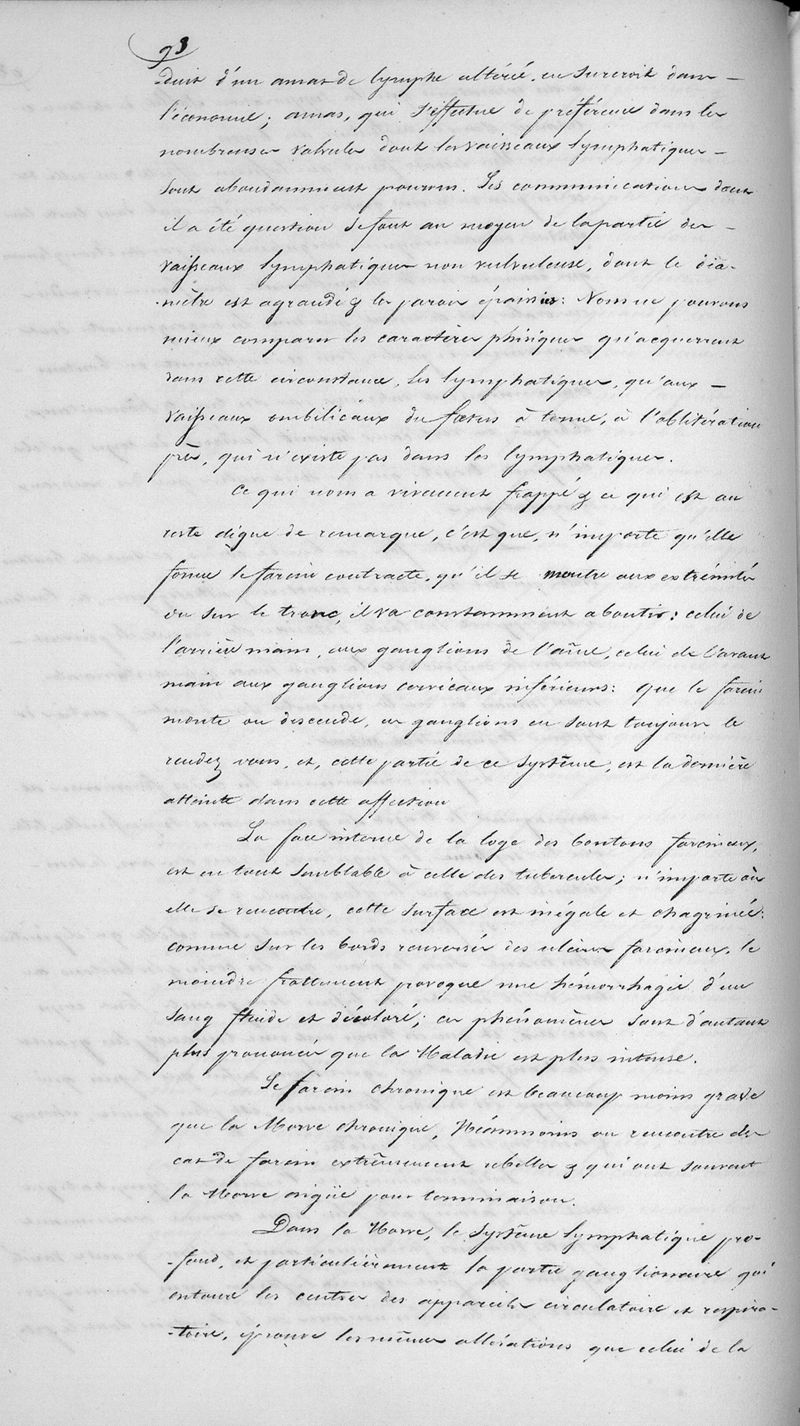 93
-duit d'un amas de lymphe altéré, en surcroit dans
l'économie; amas, qui s'effectue de préférence dans les
nombreuses valvules dont les vaisseaux lymphatiques
sont abondamment pourvus. Les communications dont
il a été question se font au moyen de la partie des
vaisseaux lymphatiques non valvuleuse, dont le dia-
-mètre est agrandi & les parois épaissies: Nous ne pouvons
mieux comparer les caractères phisiques qu'acquerrent
dans cette circonstance, les lymphatiques, qu'aux
vaisseaux ombilicaux du fœtus à terme, à l'oblitération
près, qui n'existe pas dans les lymphatiques.
Ce qui nous a vivement frappé & ce qui est au
reste digne de remarque, c'est que, n'importe qu'elle
forme le farcin contracte, qu'il se montre aux extrémités
ou sur le tronc, il va constamment aboutir: celui de
l'arrière main, aux ganglions de l'aîne, celui de l'avant
main aux ganglions cervicaux inférieurs: que le farcin
monte ou descende, ces ganglions en sont toujours le
rendez vous, et, cette partie de ce système, est la dernière
atteinte dans cette affection
La face interne de la loge des boutons farcineux,
est en tout semblable à celle des tubercules; n'importe où
elle se rencontre, cette surface est inégale et chagrinée:
comme sur les bords renversés des ulcères farcineux, le
moindre frottement provoque une hémorrhagie d'un
sang fluide et décoloré; ces phénomènes sont d'autant
plus prononcés que la Maladie est plus intense.
Le farcin chronique est beaucoup moins grave
que la Morve chronique, Néanmoins on rencontre des
cas de farcin extrêmement rebelles & qui ont souvent
la Morve aigüe pour terminaison.
Dans la Morve, le système lymphatique pro-
-fond, et particulièrement la partie ganglionaire qui
entoure les centres des appareils circulatoire et respira-
-toire, éprouve les mêmes altérations que celui de la